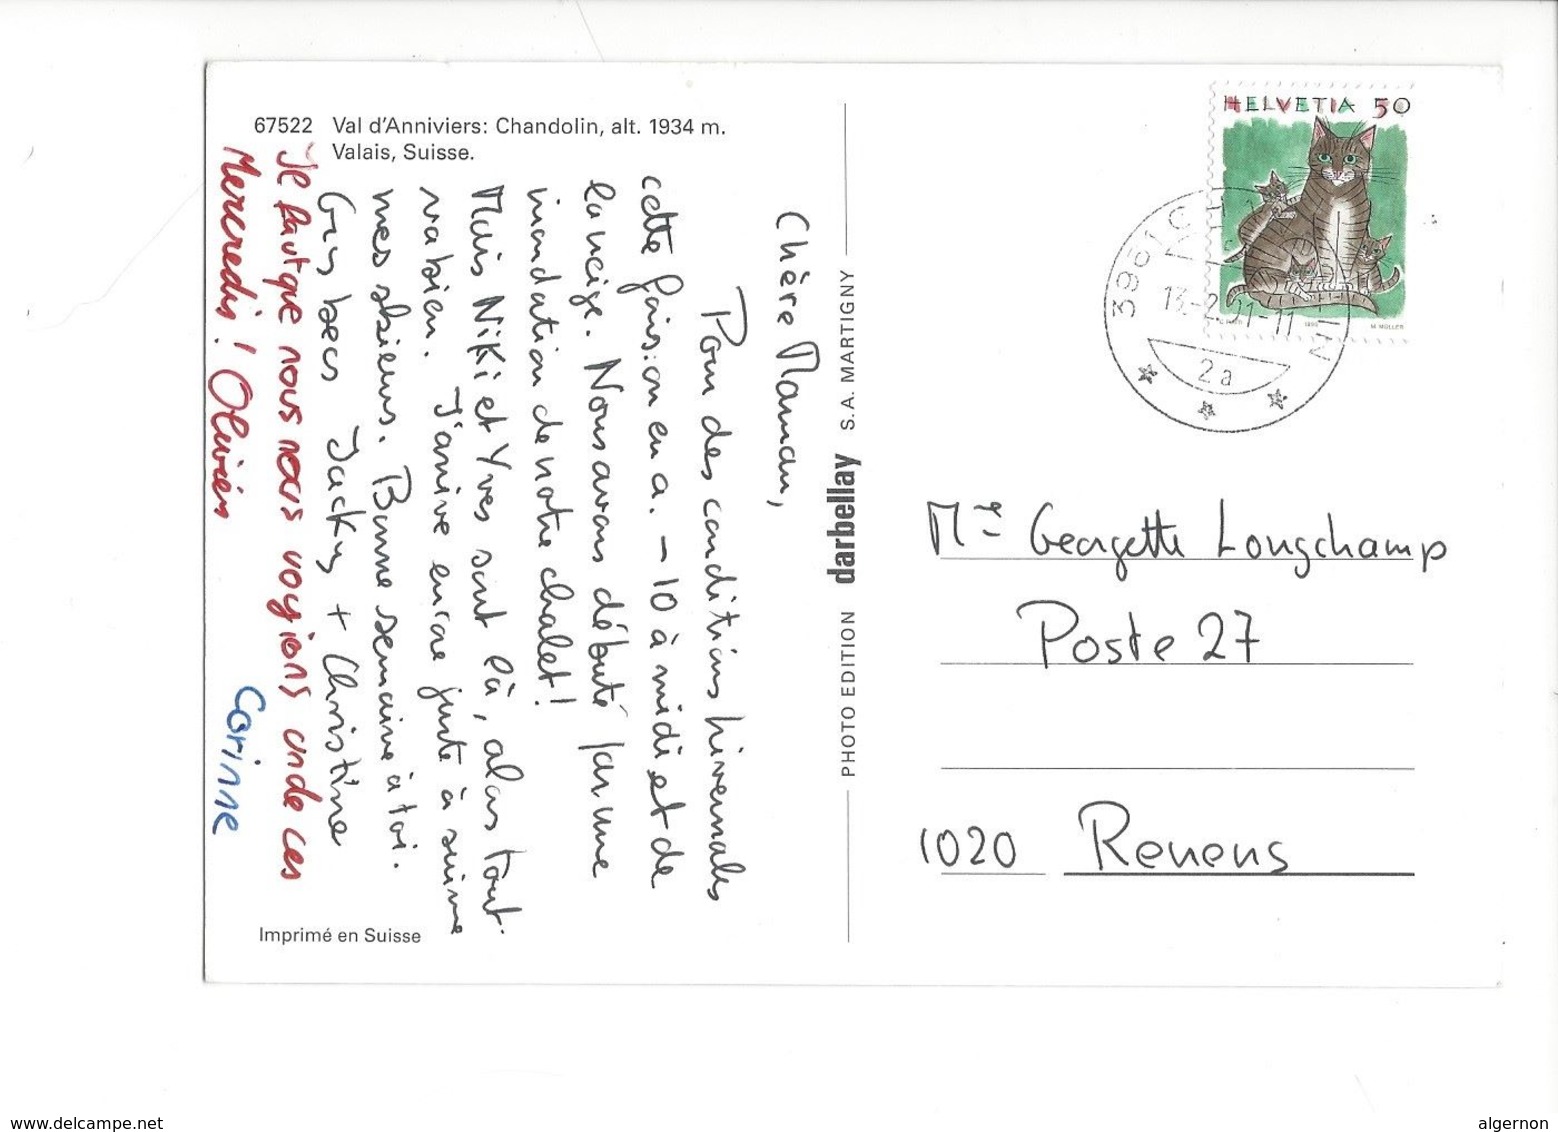 67522 Val d'Anniviers: Chandolin, alt. 1934 m.
Valais, Suisse.
Chère Maman,
Pour des conditions hivernales
cette fois: on en a. -10 à midi et de
la neige. Nous avons débuté par une
inondation de notre chalet!
Mais Niki et Yves sont là, alors tout
va bien. J'arrive encore juste à suivre
mes skieurs. Bonne semaine à toi.
Gry becs Jacky + Christine
Je faut que nous nous voyions un de ces
Mercredis! Olivier
Corinne
Imprimé en Suisse
PHOTO EDITION darbellay S.A. MARTIGNY
HELVETIA 50
1990
M. MÜLLER
3961 CHANDOLIN
13.-2.91-11
2a
Me Georgette Longchamp
Poste 27
1020 Renens
www.delcampe.net
algernon